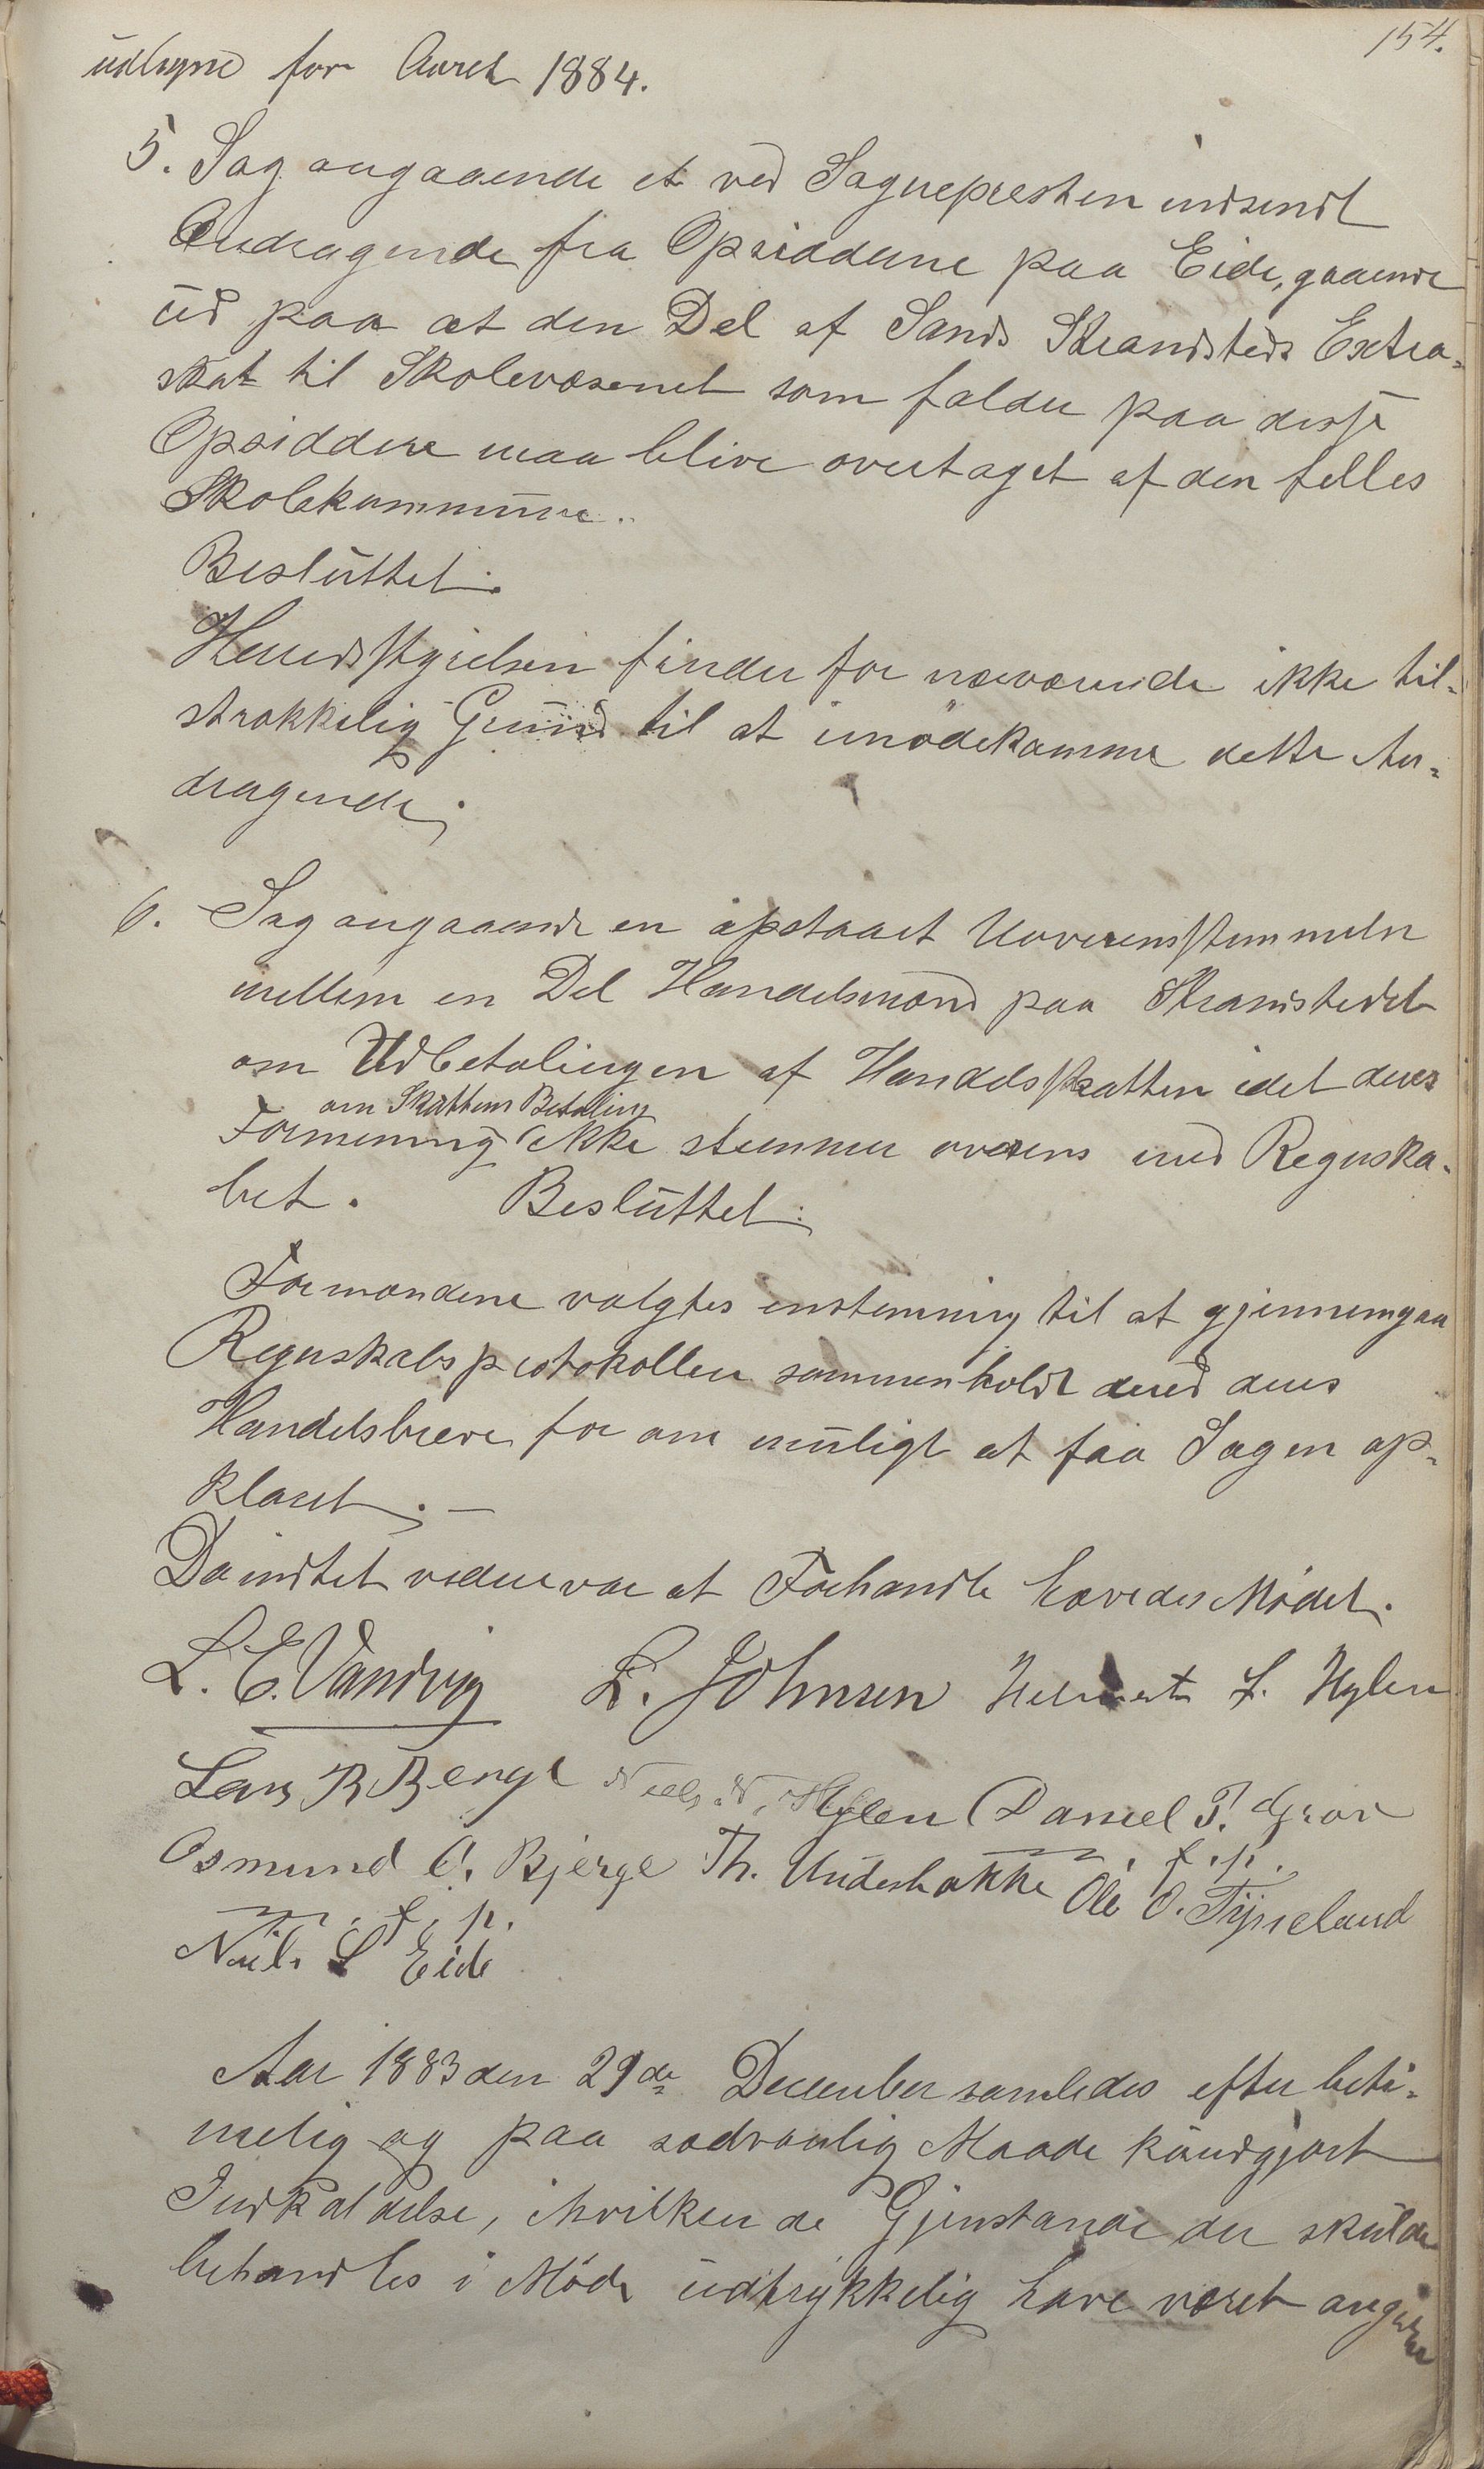 154.
udlignes for Aaret 1884.
5. Sag angaaende et ved Sognepresten indsendt
Andragende fra Opsidderne paa Eide, gaaende
ud paa at den Del af Sands Strandsteds Extra-
skat til Skolevæsenet som falder paa disse
Opsiddere maa blive overtaget af den felles
Skolekommune.
Besluttet:
Herredsstyrelsen finder for nærværende ikke til-
strækkelig Grund til at imødekomme dette An-
dragende.
6. Sag angaaende en opstaaet Uoverensstemmelse
mellem en Del Handelsmænd paa Strandstedet
om Udbetalingen af Handelsskatten idet deres
om Skattens Betaling
Formening ikke stemmer overens med Regnska-
bet. Besluttet:
Formændene valgtes enstemmig til at gjennemgaa
Regnskabsprotokollen sammenholdt med deres
Handelsbreve for om muligt at faa Sagen op-
klaret. —
Da intet videre var at Forhandle hævedes Mødet.
L. E. Vandvig L. Johnsen L. Hylen
Lars B Berge Neels N. Hylen Daniel T. Grov
Osmund O. Bjerge Th. Underbakke m. f. p. Ole O. Tjøseland
m. f. p.
Nils L Eide
Aar 1883 den 29de December samledes efter beti-
melig og paa sædvanlig Maade kundgjort
Indkaldelse, ihvilken de Gjenstande der skulde
behandles i Møde udtrykkelig have været angivne